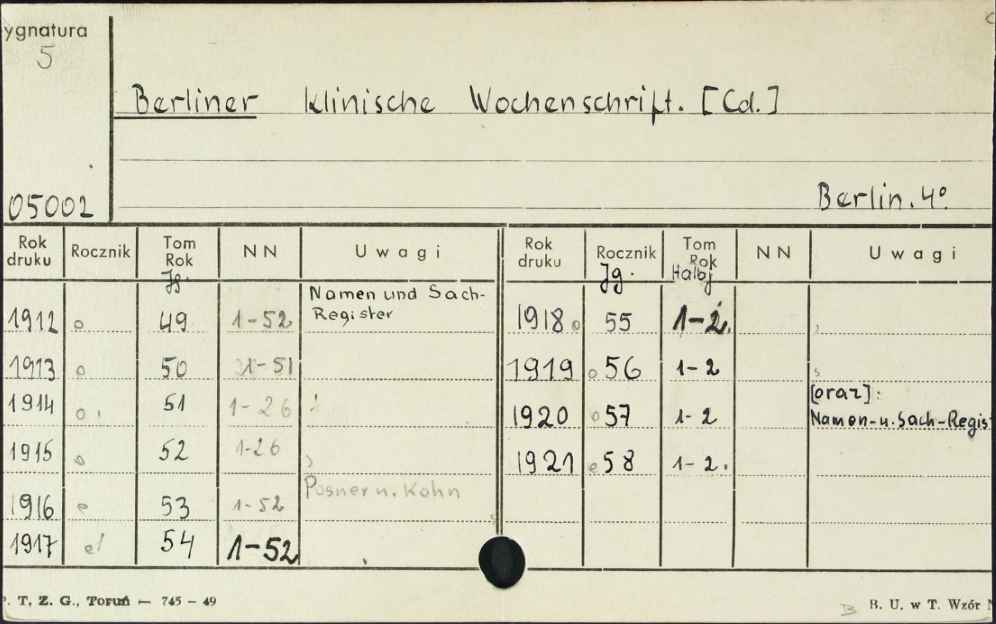 ygnatura
5
Berliner klinische Wochenschrift. [Cd.]
05002
Berlin. 4°.
Rok druku Rocznik Tom Rok NN Uwagi Rok druku Rocznik Tom Rok NN Uwagi
Jg. Jg. Halbj
Namen und Sach-
1912 49 1-52 Register
1913 50 -51
1914 51 1-26
1915 52 1-26
Posner u. Kohn
1916 53 1-52
1917 54 1-52
1918 55 1-2.
1919 56 1-2
[oraz]:
1920 57 1-2 Namen-u. Sach-Regist
1921 58 1-2.
T. Z. G., Toruń — 745 - 49
B. U. w T. Wzór